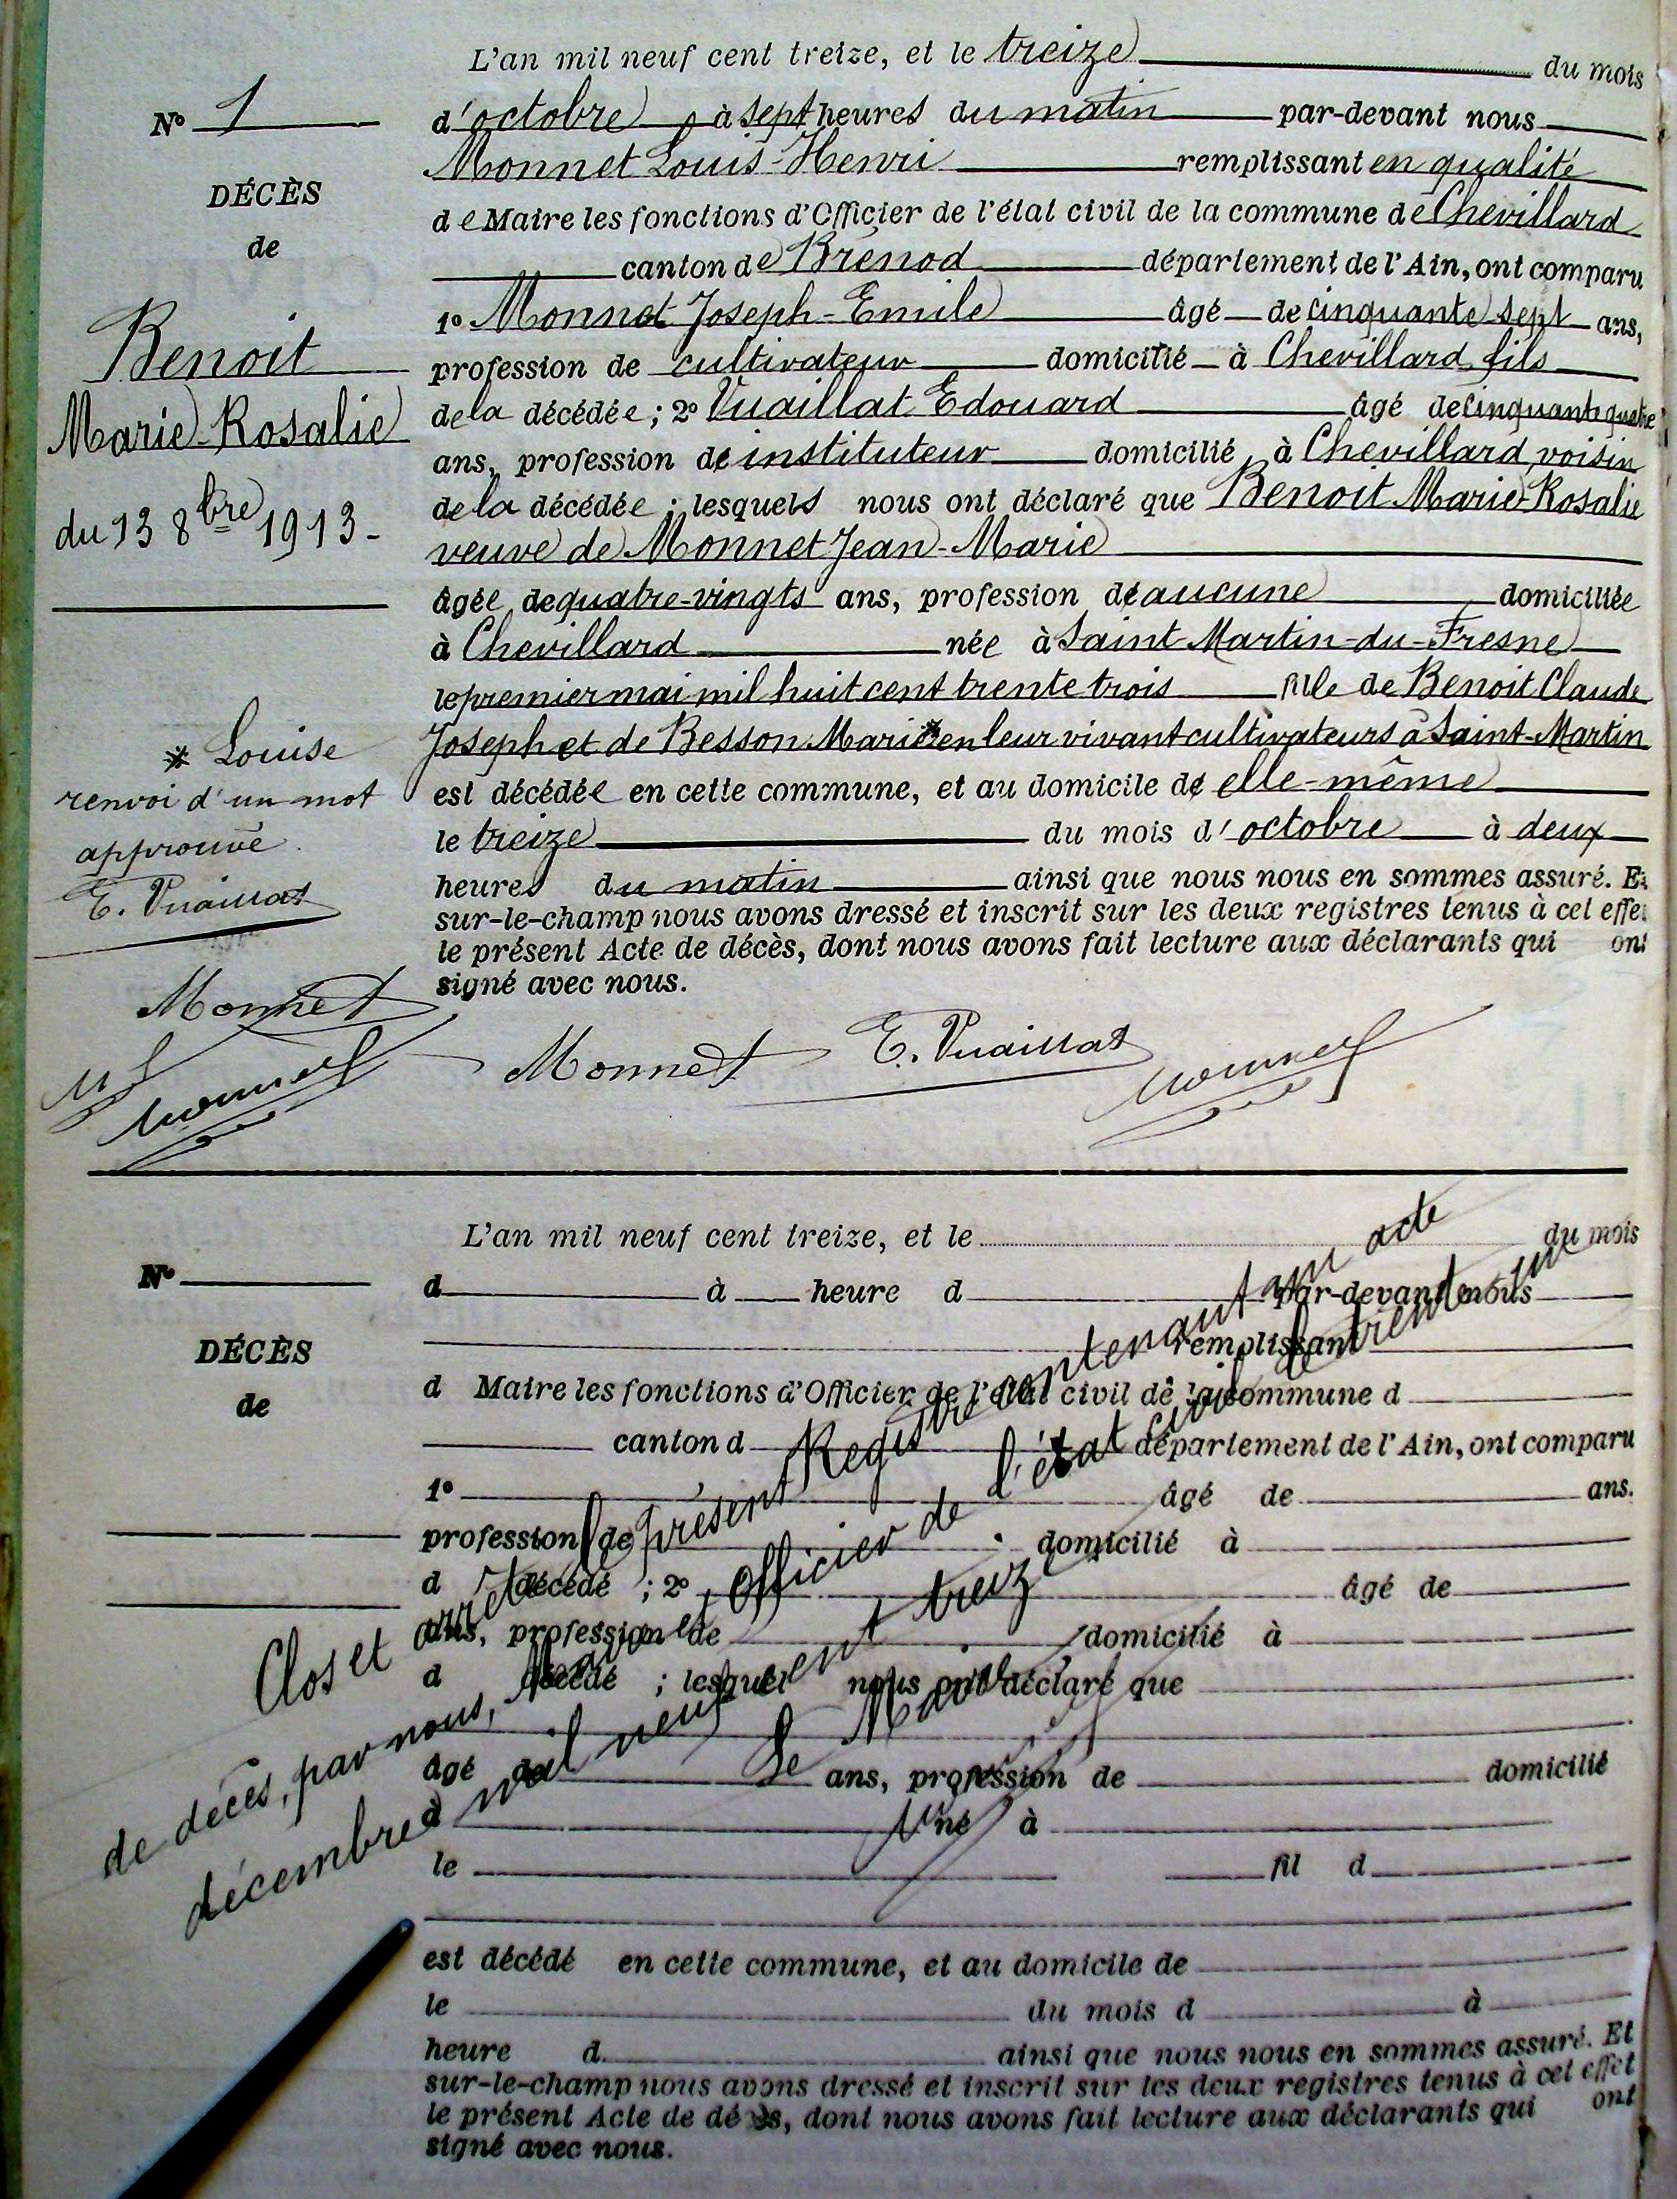 L'an mil neuf cent treize, et le treize du mois
N° 1
d'octobre à sept heures du matin par-devant nous
Monnet Louis-Henri remplissant en qualité
DÉCÈS
de Maire les fonctions d'Officier de l'état civil de la commune de Chevillard
de
canton de Brénod département de l'Ain, ont comparu
1° Monnet Joseph-Emile âgé de cinquante sept ans,
Benoit
profession de cultivateur domicilié à Chevillard fils
Marie-Rosalie
de la décédée ; 2° Vuaillat Edouard âgé de cinquante quatre
ans, profession de instituteur domicilié à Chevillard, voisin
du 13 8bre 1913-
de la décédée ; lesquels nous ont déclaré que Benoit Marie-Rosalie
veuve de Monnet Jean-Marie
âgée de quatre-vingts ans, profession de aucune domiciliée
à Chevillard née à Saint Martin-du-Fresne
le premier mai mil huit cent trente trois fille de Benoit Claude
Joseph et de Besson Marie * en leur vivant cultivateurs à Saint-Martin
* Louise
renvoi d'un mot
approuvé.
E. Vuaillat
est décédée en cette commune, et au domicile de elle-même
le treize du mois d'octobre à deux
heures du matin ainsi que nous nous en sommes assuré. Et
sur-le-champ nous avons dressé et inscrit sur les deux registres tenus à cet effe
le présent Acte de décès, dont nous avons fait lecture aux déclarants qui ont
signé avec nous.
Monnet
Monnet
Monnet E. Vuaillat Monnet
L'an mil neuf cent treize, et le du mois
N°
d à heure d par-devant nous
remplissant
DÉCÈS
d Maire les fonctions d'Officier de l'état civil de la commune d
de
canton d département de l'Ain, ont comparu
1° âgé de ans.
profession de domicilié à
d décédé ; 2° âgé de
ans, profession de domicilié à
d décédé ; lesquel nous ont déclaré que
âgé de ans, profession de domicilié
à né à
le fil d
est décédé en cette commune, et au domicile de
le du mois d à
heure d ainsi que nous nous en sommes assuré. Et
sur-le-champ nous avons dressé et inscrit sur les deux registres tenus à cet effet
le présent Acte de décès, dont nous avons fait lecture aux déclarants qui ont
signé avec nous.
Clos et arrêté le présent Registre contenant un acte
de décès, par nous, Maire et Officier de l'état civil le trente un
décembre mil neuf cent treize
Le Maire